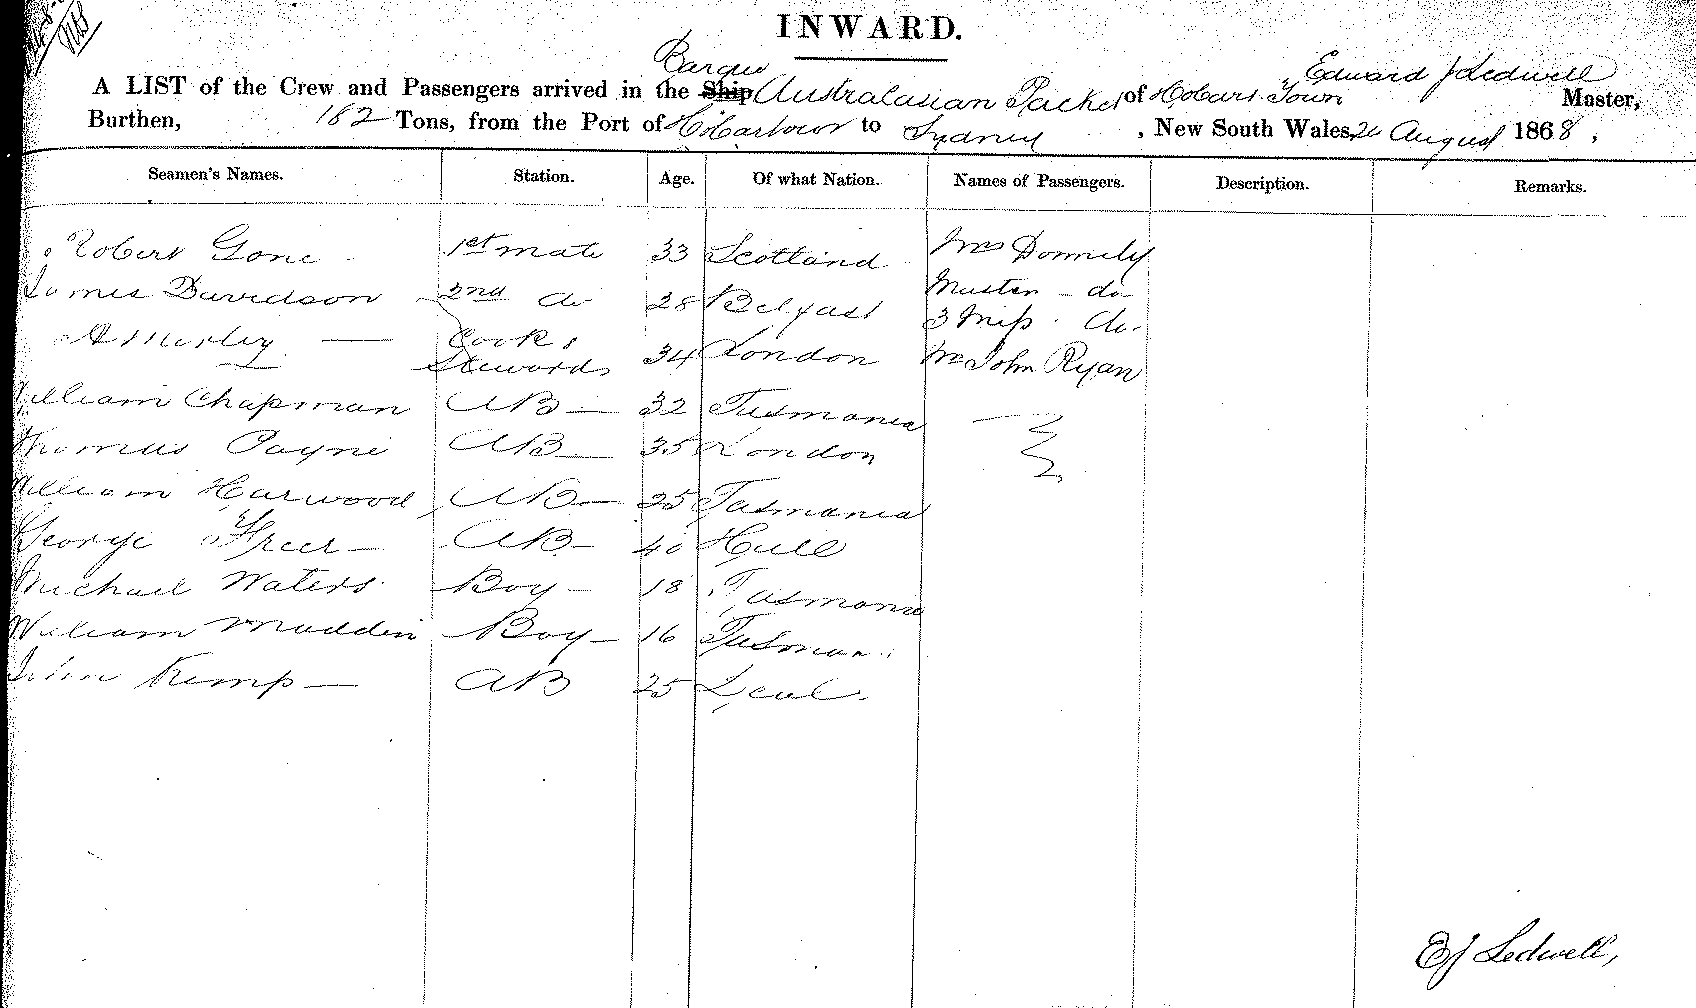 INWARD.
Barque Edward J Ledwell
A LIST of the Crew and Passengers arrived in the Ship Australasian Packet of Hobart Town Master,
Burthen, 182 Tons, from the Port of to Sydney , New South Wales, August 1868,
Seamen's Names. Station. Age. Of what Nation. Names of Passengers. Description. Remarks.
Robert Gone 1st mate 33 Scotland Mrs Donnely
James Davidson 2nd do 28 Belfast Master - do
3 Miss do.
A Morley — Cook &
Stewards 34 London Mr John Ryan
William Chapman AB — 32 Tasmania
Thomas Payne AB — 35 London
William Harwood AB — 25 Tasmania
George Freer — AB — 40 Hull
Michael Waters Boy — 18 Tasmania
William Maddin Boy — 16 Tasman
John Kemp — AB 25
EJ Ledwell,